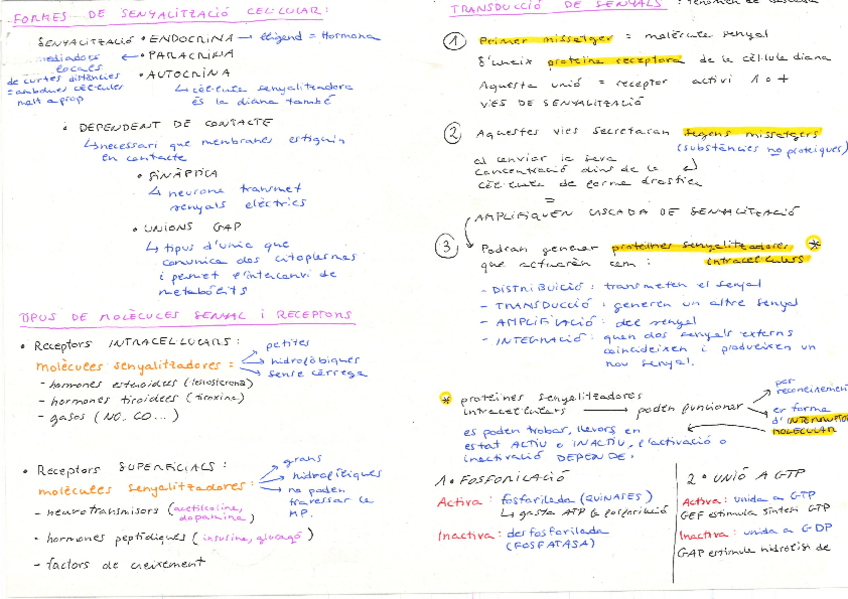 FORMES DE SENYALITZACIÓ CEL·LULAR:
SENYALITZACIÓ • ENDOCRINA → lligend = Hormona
mediadors ← • PARACRINA
locals
de curtes distàncies • AUTOCRINA
= ambdues cèl·lules
molt a prop
↳ cèl·lula senyalitzadora
és la diana també
• DEPENDENT DE CONTACTE
↳ necessari que membranes estiguin
en contacte
• SINÀPTICA
↳ neurone transmet
senyals elèctrics
• UNIONS GAP
↳ tipus d'unió que
comunica dos citoplasmes
i permet l'intercanvi de
metabòlits
TIPUS DE MOLÈCULES SENYAL I RECEPTORS
• Receptors INTRACEL·LULARS:
molècules senyalitzadores =
petites
hidrofòbiques
sense càrrega
- hormones esteroidees (testosterona)
- hormones tiroidees (tiroxina)
- gasos (NO, CO...)
• Receptors SUPERFICIALS:
molècules senyalitzadores:
grans
hidrofíliques
no poden
travessar la
MP.
- neurotransmisors (acetilcolina,
dopamina)
- hormones peptídiques (insulina, glucagó)
- factors de creixement
TRANSDUCCIÓ DE SENYALS : fenomen de cascada
1 Primer missatger = molècula senyal
S'uneix proteïna receptora de la cèl·lula diana
Aquesta unió = receptor activi 1 o +
VIES DE SENYALITZACIÓ
2 Aquestes vies secretaran segons missatgers
(substàncies no proteïques)
al canviar la seva
concentració dins de la
cèl·lula de forma dràstica
=
AMPLIFIQUEN CASCADA DE SENYALITZACIÓ
3 Podran generar proteïnes senyalitzadores *
que actuaràn com: intracel·lulars
- DISTRIBUICIÓ: transmeten el senyal
- TRANSDUCCIÓ: generen un altre senyal
- AMPLIFICACIÓ: del senyal
- INTEGRACIÓ: quan dos senyals externs
coincideixen i produeixen un
nou senyal.
* proteïnes senyalitzadores
intracel·lulars → poden funcionar
per
reconeixement
en forma
d'INTERRUPTOR
MOLECULAR
es poden trobar, llavors en
estat ACTIU o INACTIU, l'activació o
inactivació DEPENDE:
1• FOSFORILACIÓ
Activa: fosforilada (QUINASES)
↳ gasta ATP la fosforilació
Inactiva: desfosforilada
(FOSFATASA)
2• UNIÓ A GTP
Activa: unida a GTP
GEF estimula síntesi GTP
Inactiva: unida a GDP
GAP estimula hidròlisi de